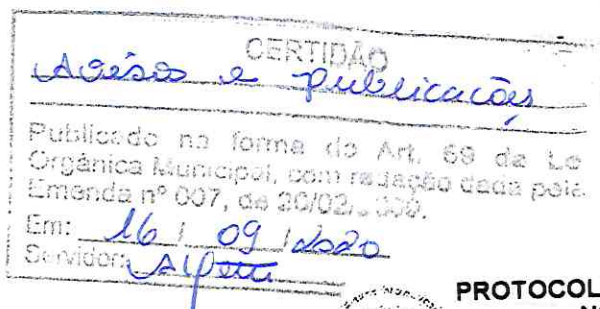 CERTIDÃO
Avisos e publicações
Publicado na forma do Art. 69 da Le
Orgânica Municipal, com redação dada pela
Emenda nº 007, de 20/02/
Em: 16 / 09 / 2020
Servidor:
PROTOCOL